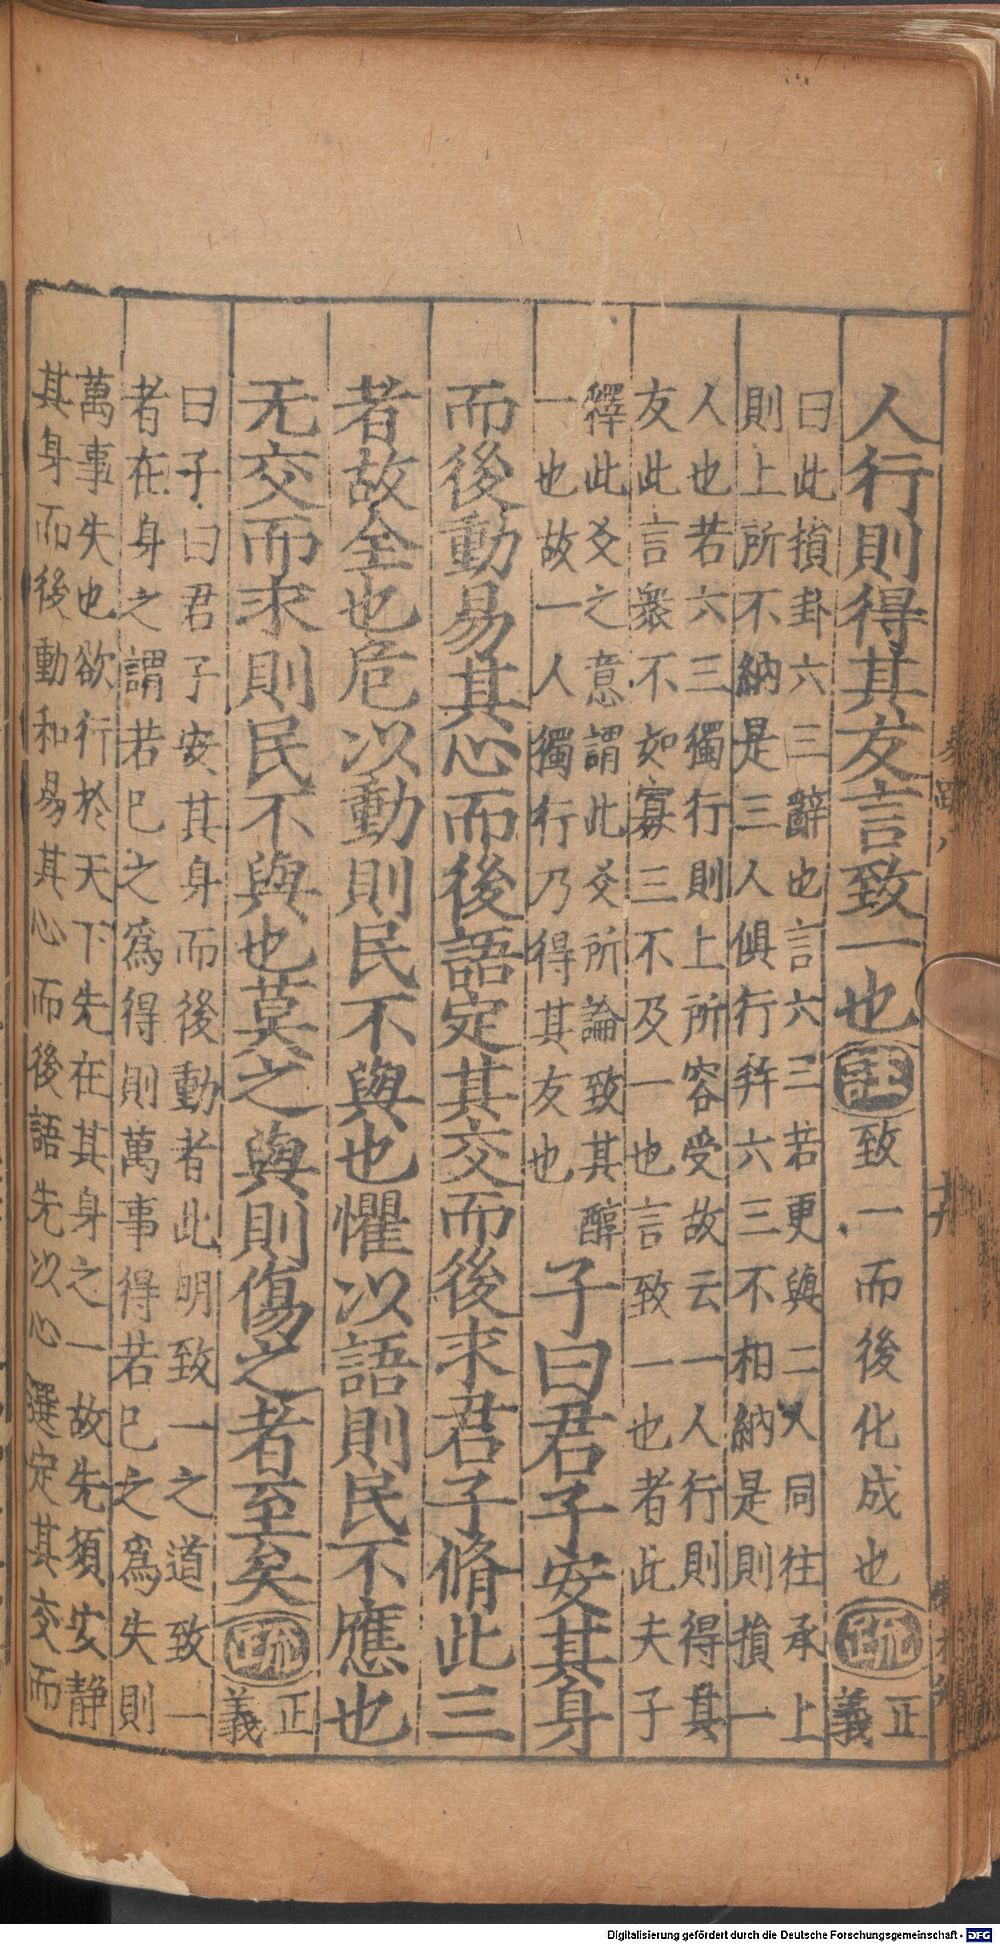 人行則得其友言致一也註致一而後化成也疏正義
曰此損卦六三辭也言六三若更與二人同往承上
則上所不納是三人俱行幷六三不相納是則損一
人也若六三獨行則上所容受故云一人行則得其
友此言衆不如寡三不及一也言致一也者此夫子
釋此爻之意謂此爻所論致其醇
一也故一人獨行乃得其友也
子曰君子安其身
而後動易其心而後語定其交而後求君子脩此三
者故全也危以動則民不與也懼以語則民不應也
无交而求則民不與也莫之與則傷之者至矣疏正義
曰子曰君子安其身而後動者此明致一之道致一
者在身之謂若已之爲得則萬事得若已之爲失則
萬事失也欲行於天下先在其身之一故先須安静
其身而後動和易其心而後語先以心選定其交而
Digitalisierung gefördert durch die Deutsche Forschungsgemeinschaft - DFG